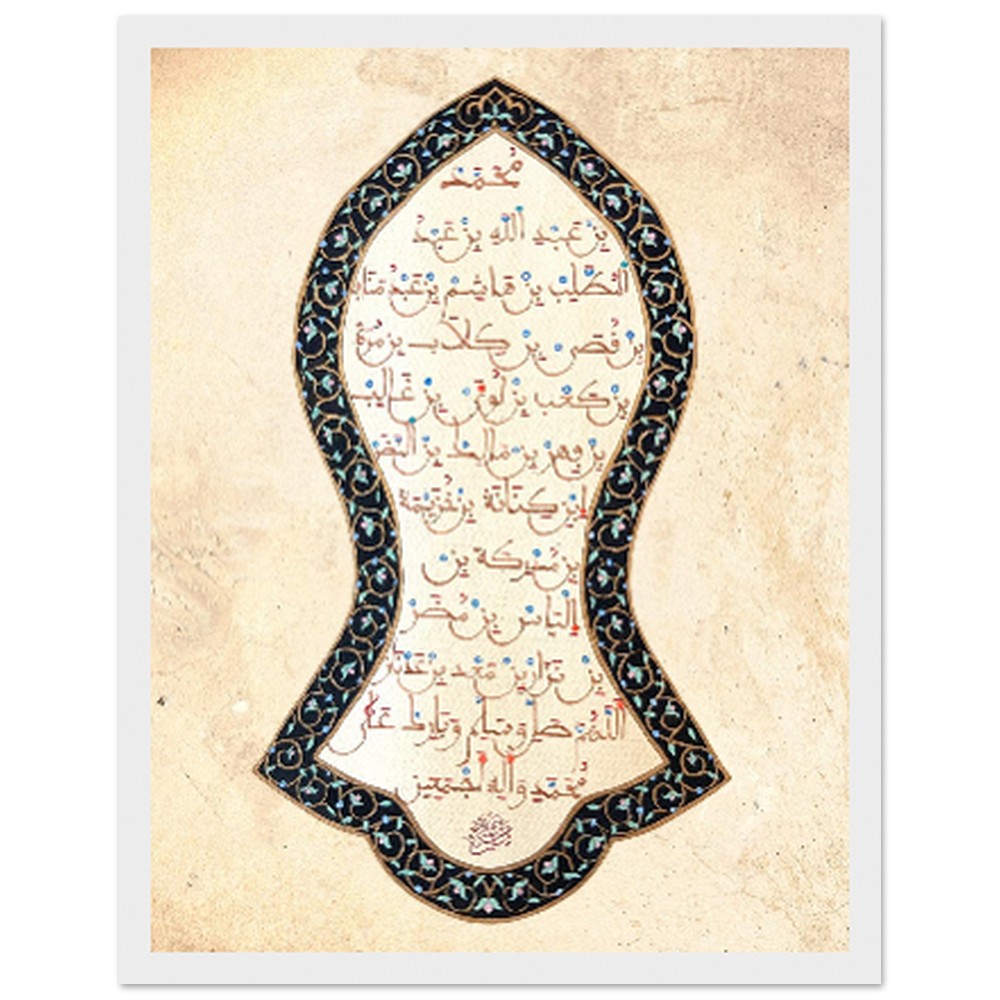 مُحَمَّد
بن عبد الله بن عبد
المطلب بن هاشم بن عبد مناف
بن قصي بن كلاب بن مرة
بن كعب بن لؤي بن غالب
بن فهر بن مالك بن النضر
بن كنانة بن خزيمة
بن مدركة بن
إلياس بن مضر
بن نزار بن معد بن عدنان
اللهم صل وسلم وبارك على
محمد وآله أجمعين